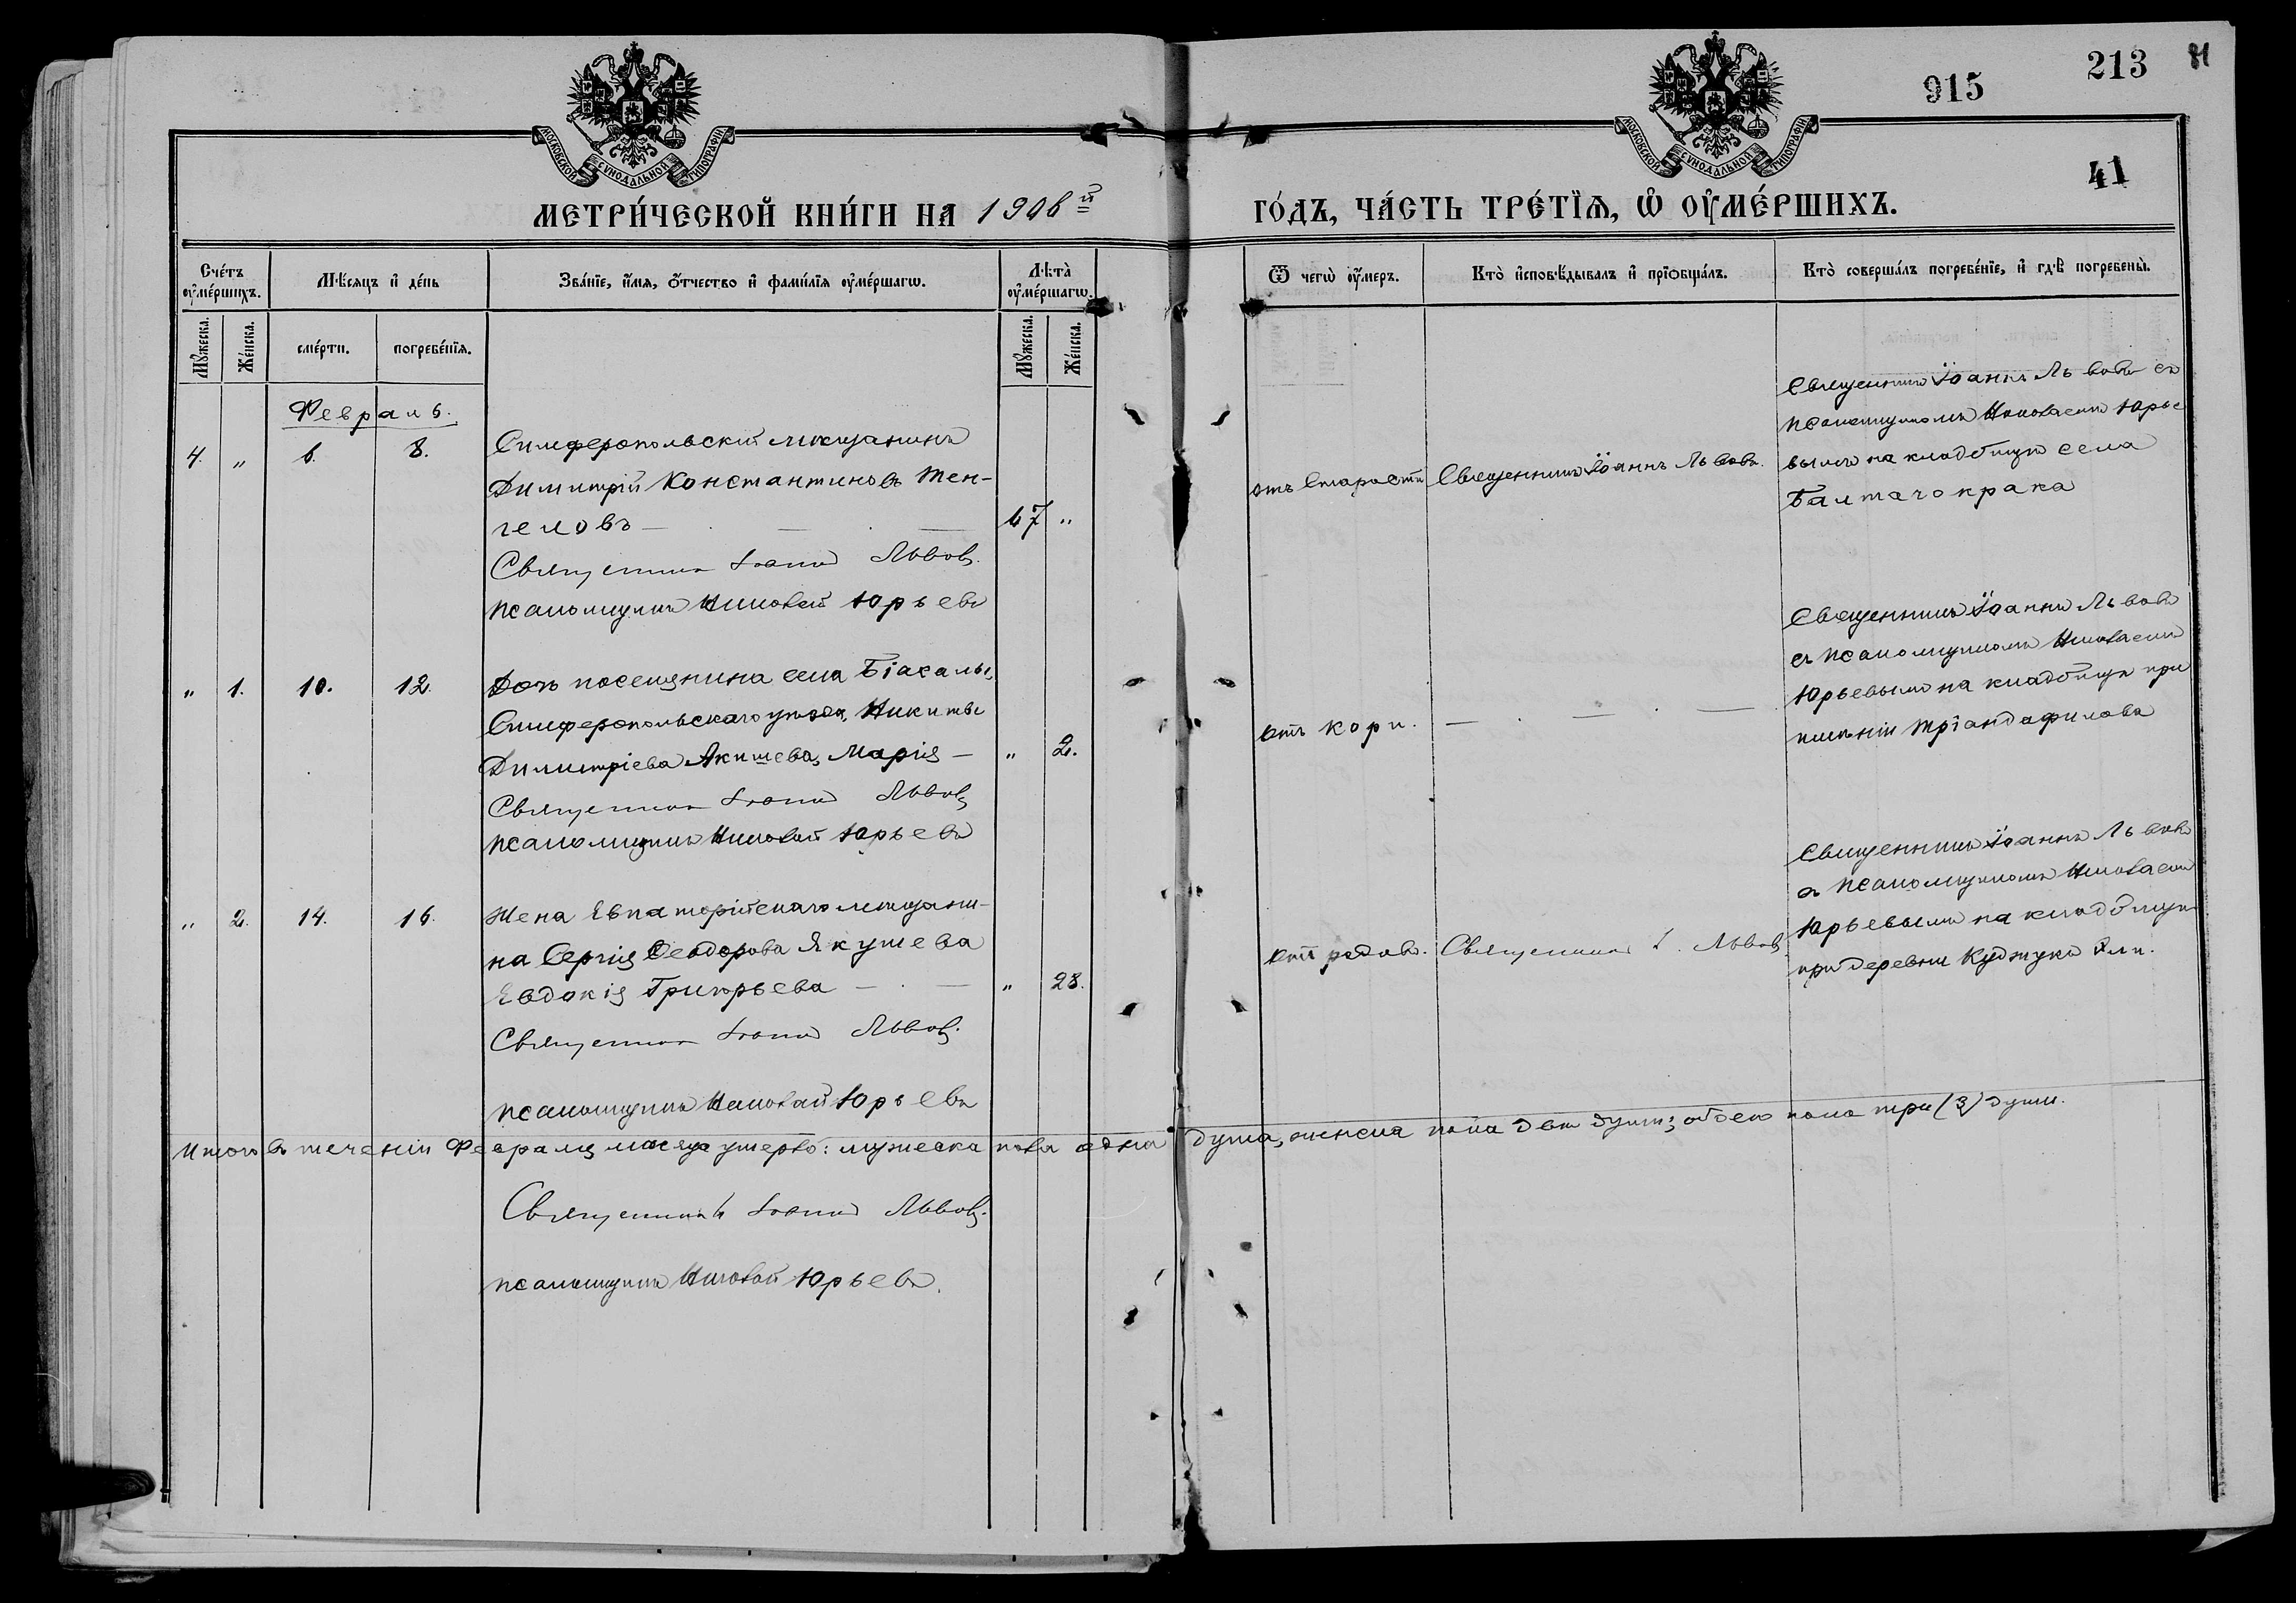 213
915
41
МОСКОВСКОЙ СѴНОДАЛЬНОЙ ТИПОГРАФІИ
МОСКОВСКОЙ СѴНОДАЛЬНОЙ ТИПОГРАФІИ
МЕТРИ́ЧЕСКОЙ КНИ́ГИ НА 1906й ГО́ДЪ, ЧА́СТЬ ТРЕ́ТІѦ, Ѡ ОУМЕ́РШИХЪ.
Сче́тъ оуме́ршихъ.
Мѣ́сяцъ и де́нь
Зва́нїе, и́мя, о́тчество и фами́лїя оуме́ршагѡ.
Лѣта̀ оуме́ршагѡ.
Ѿ чегѡ̀ оу́меръ.
Кто̀ исповѣ́дывалъ и прїѡбща́лъ.
Кто̀ соверша́лъ погребе́нїе, и гдѣ̀ погребены̀.
Мꙋ́жеска.
Же́нска.
сме́рти.
погребе́нїя.
Мꙋ́жеска.
Же́нска.
Февраль.
4. " 6. 8.
Симферопольскій мѣщанинъ
Димитрій Константиновъ Тен-
геловъ — 67 "
Священник Іоанн Львов.
Псаломщикъ Николай Юрьевъ
отъ Старости
Священникъ Іоаннъ Львовъ.
Священникъ Іоаннъ Львовъ съ
псаломщикомъ Николаемъ Юрье
вымъ на кладбищѣ села
Балтачокрака
" 1. 10. 12.
Дочь поселянина села Біасалы,
Симферопольскаго уѣзда, Никиты
Димитріева Акишева, Марія — " 2.
Священник Іоанн Львов
Псаломщикъ Николай Юрьевъ
отъ кори. — . — . —
Священникъ Іоаннъ Львовъ
съ псаломщикомъ Николаемъ
Юрьевымъ на кладбищѣ при
имѣніи Тріандафилова
" 2. 14. 16.
Жена Евпаторійскаго мѣщани-
на Сергія Ѳеодорова Якушева
Евдокія Григорьева — . — " 28.
Священник Іоанн Львов.
псаломщикъ Николай Юрьевъ
отъ родовъ.
Священник І. Львов
Священникъ Іоаннъ Львовъ
съ псаломщикомъ Николаемъ
Юрьевымъ на кладбищѣ
при деревни Куджука Эли.
Итого въ теченіи Февраля мѣсяца умерло: мужеска пола одна душа, женска пола двѣ души; обоего пола три (3) души.
Священникъ Іоанн Львов.
псаломщикъ Николай Юрьевъ.